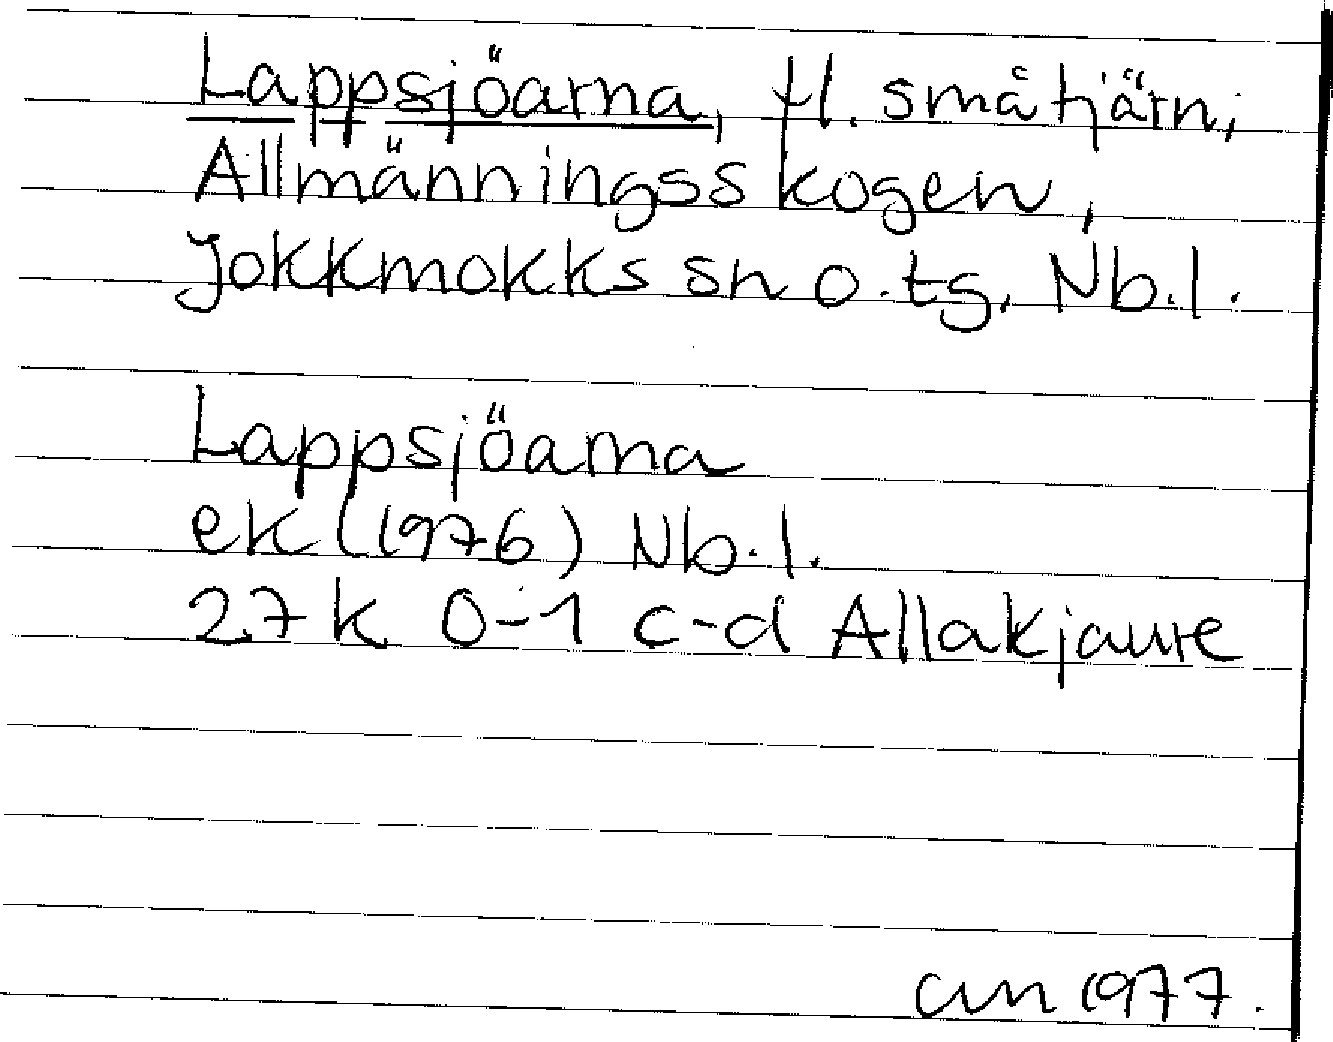 Lappsjöarna, fl. småtjärn,
Allmänningsskogen,
Jokkmokks sn o. tg. Nb.l.
Lappsjöarna
ek (1976) Nb.l.
27 k 0-1 c-d Allakjaure
1977.